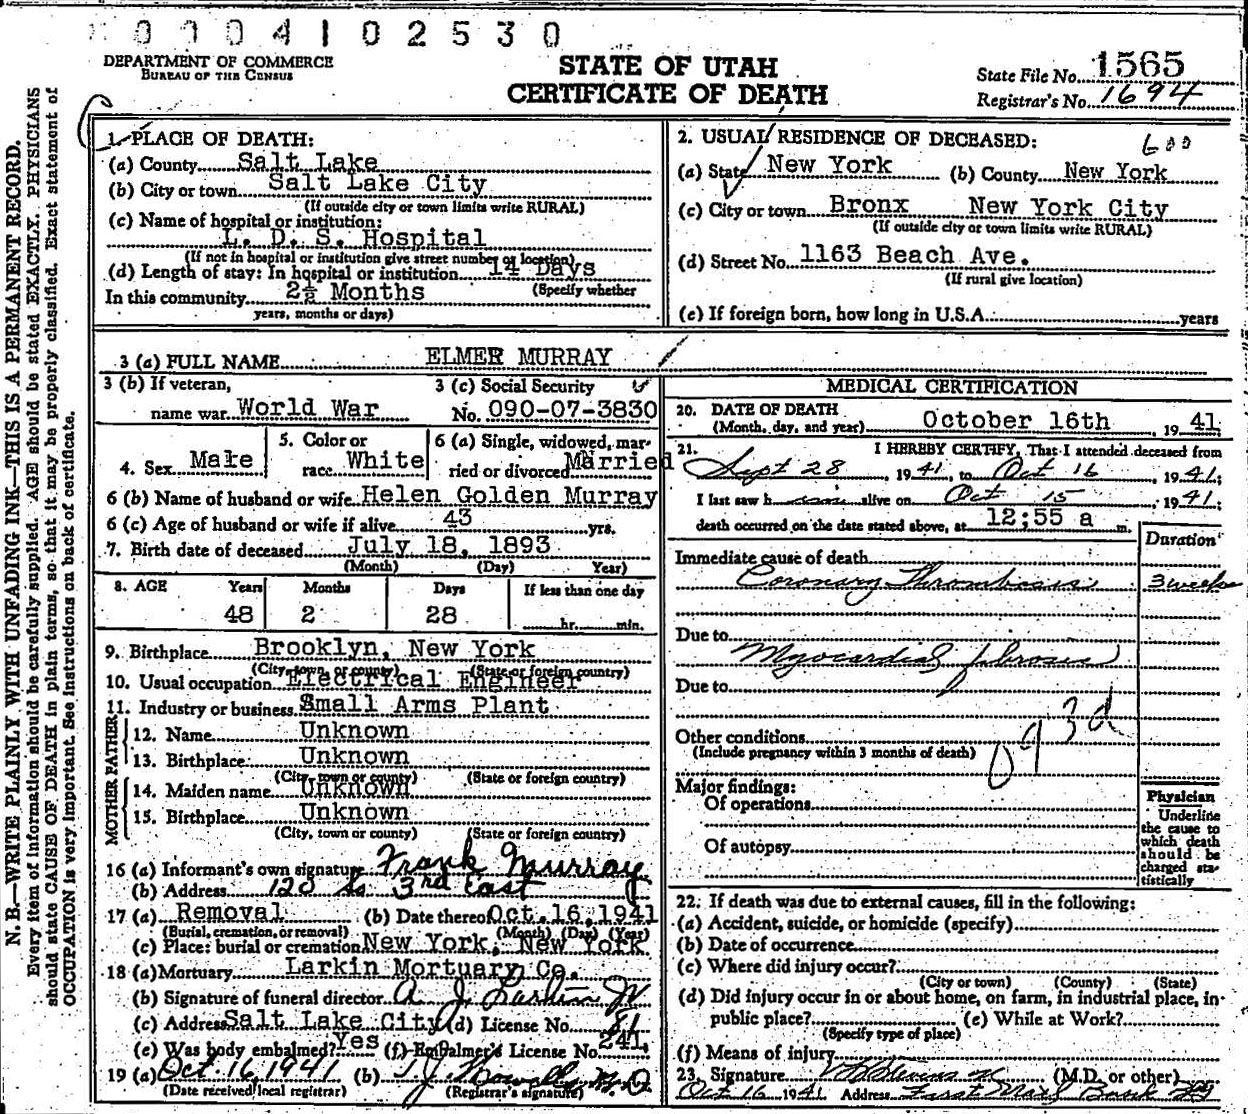 0 0 0 4 1 0 2 5 3 0
DEPARTMENT OF COMMERCE
BUREAU OF THE CENSUS
STATE OF UTAH
CERTIFICATE OF DEATH
State File No. 1565
Registrar's No. 1694
N. B.—WRITE PLAINLY WITH UNFADING INK—THIS IS A PERMANENT RECORD.
Every item of information should be carefully supplied. AGE should be stated EXACTLY. PHYSICIANS
should state CAUSE OF DEATH in plain terms, so that it may be properly classified. Exact statement of
OCCUPATION is very important. See Instructions on back of certificate.
1. PLACE OF DEATH:
(a) County Salt Lake
(b) City or town Salt Lake City
(If outside city or town limits write RURAL)
(c) Name of hospital or institution:
L. D. S. Hospital
(If not in hospital or institution give street number or location)
(d) Length of stay: In hospital or institution 14 Days
(Specify whether
In this community 2½ Months
years, months or days)
2. USUAL RESIDENCE OF DECEASED:
600
(a) State New York (b) County New York
(c) City or town Bronx New York City
(If outside city or town limits write RURAL)
(d) Street No. 1163 Beach Ave.
(If rural give location)
(e) If foreign born, how long in U.S.A. years
3 (a) FULL NAME ELMER MURRAY
3 (b) If veteran,
name war World War
3 (c) Social Security
No. 090-07-3830
4. Sex Male
5. Color or
race White
6 (a) Single, widowed, mar-
ried or divorced Married
6 (b) Name of husband or wife Helen Golden Murray
6 (c) Age of husband or wife if alive 43 yrs.
7. Birth date of deceased July 18, 1893
(Month) (Day) Year)
8. AGE Years Months Days If less than one day
48 2 28 hr. min.
9. Birthplace Brooklyn, New York
(City, town, or county) (State or foreign country)
10. Usual occupation Electrical Engineer
11. Industry or business Small Arms Plant
FATHER
12. Name Unknown
13. Birthplace Unknown
(City, town or county) (State or foreign country)
MOTHER
14. Maiden name Unknown
15. Birthplace Unknown
(City, town or county) (State or foreign country)
16 (a) Informant's own signature Frank Murray
(b) Address 120 So 3rd East
17 (a) Removal (b) Date thereof Oct. 16, 1941
(Burial, cremation, or removal) (Month) (Day) (Year)
(c) Place: burial or cremation New York, New York
18 (a) Mortuary Larkin Mortuary Co.
(b) Signature of funeral director A J Larkin
(c) Address Salt Lake City (d) License No. 81
(e) Was body embalmed? Yes (f) Embalmer's License No. 241,
19 (a) Oct. 16, 1941 (b) M. D
(Date received local registrar) (Registrar's signature)
MEDICAL CERTIFICATION
20. DATE OF DEATH
(Month, day, and year) October 16th, 1941
21. I HEREBY CERTIFY, That I attended deceased from
Sept 28, 1941, to Oct 16, 1941;
I last saw h im alive on Oct 15, 1941;
death occurred on the date stated above, at 12;55 a m.
Duration
Immediate cause of death
Coronary Thrombosis 3 weeks
Due to
Myocardial fibrosis
Due to
093d
Other conditions
(Include pregnancy within 3 months of death)
Major findings:
Of operations
Of autopsy
Physician
Underline
the cause to
which death
should be
charged sta-
tistically
22. If death was due to external causes, fill in the following:
(a) Accident, suicide, or homicide (specify)
(b) Date of occurrence
(c) Where did injury occur?
(City or town) (County) (State)
(d) Did injury occur in or about home, on farm, in industrial place, in
public place? (e) While at Work?
(Specify type of place)
(f) Means of injury
23. Signature (M.D. or other)
Oct 16 1941 Address First Bank